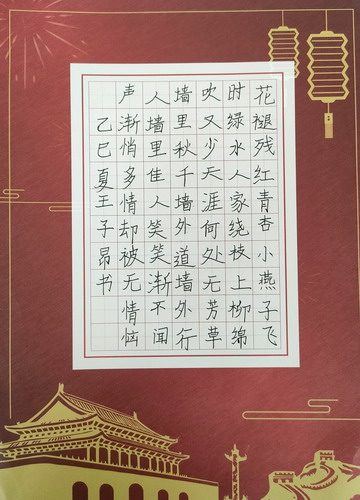 花褪残红青杏小燕子飞
时绿水人家绕枝上柳绵
吹又少天涯何处无芳草
墙里秋千墙外道墙外行
人墙里佳人笑笑渐不闻
声渐悄多情却被无情恼
乙巳夏王子昂书